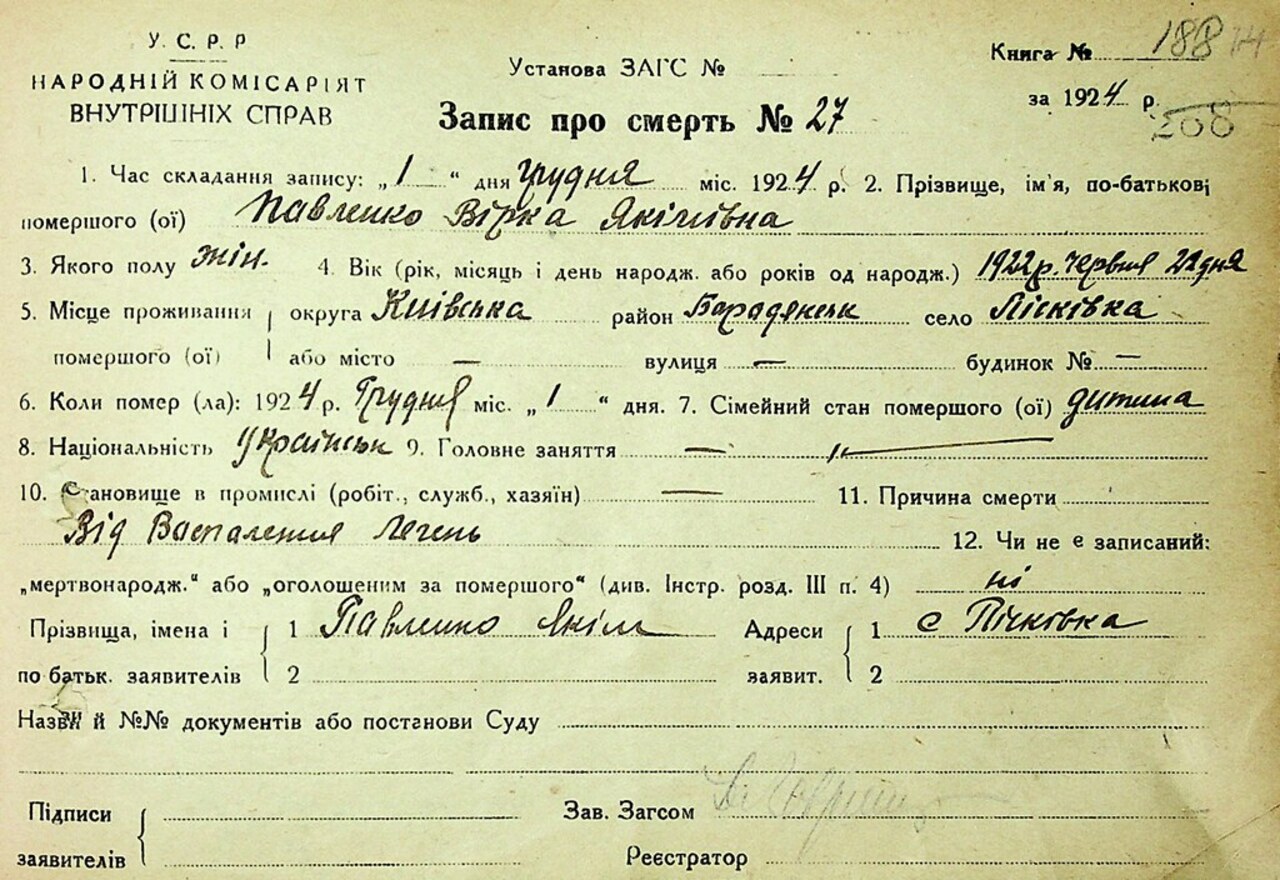 У. С. Р. Р
НАРОДНІЙ КОМІСАРІЯТ
ВНУТРІШНІХ СПРАВ
Установа ЗАГС №
Запис про смерть № 27
Книга № 188 14
за 1924 р.
200
1. Час складання запису: „1“ дня Грудня міс. 1924 р. 2. Прізвище, ім'я, по-батькові
помершого (ої) Павленко Вірка Якімівна
3. Якого полу жін. 4. Вік (рік, місяць і день народж. або років од народж.) 1922 р. червня 22 дня
5. Місце проживання округа Київська район Бородянськ село Пісківка
помершого (ої) або місто — вулиця — будинок № —
6. Коли помер (ла): 1924 р. Грудня міс. „1“ дня. 7. Сімейний стан помершого (ої) дитина
8. Національність Українськ 9. Головне заняття —
10. Становище в промислі (робіт., служб., хазяїн) — 11. Причина смерти
Від Воспаления легень 12. Чи не є записаний:
„мертвонародж.“ або „оголошеним за помершого“ (див. Інстр. розд. III п. 4) ні
Прізвища, імена і 1 Павленко Якім Адреси 1 с Пісківка
по батьк. заявителів 2 заявит. 2
Назви й №№ документів або постанови Суду
Підписи Зав. Загсом
заявителів Реєстратор